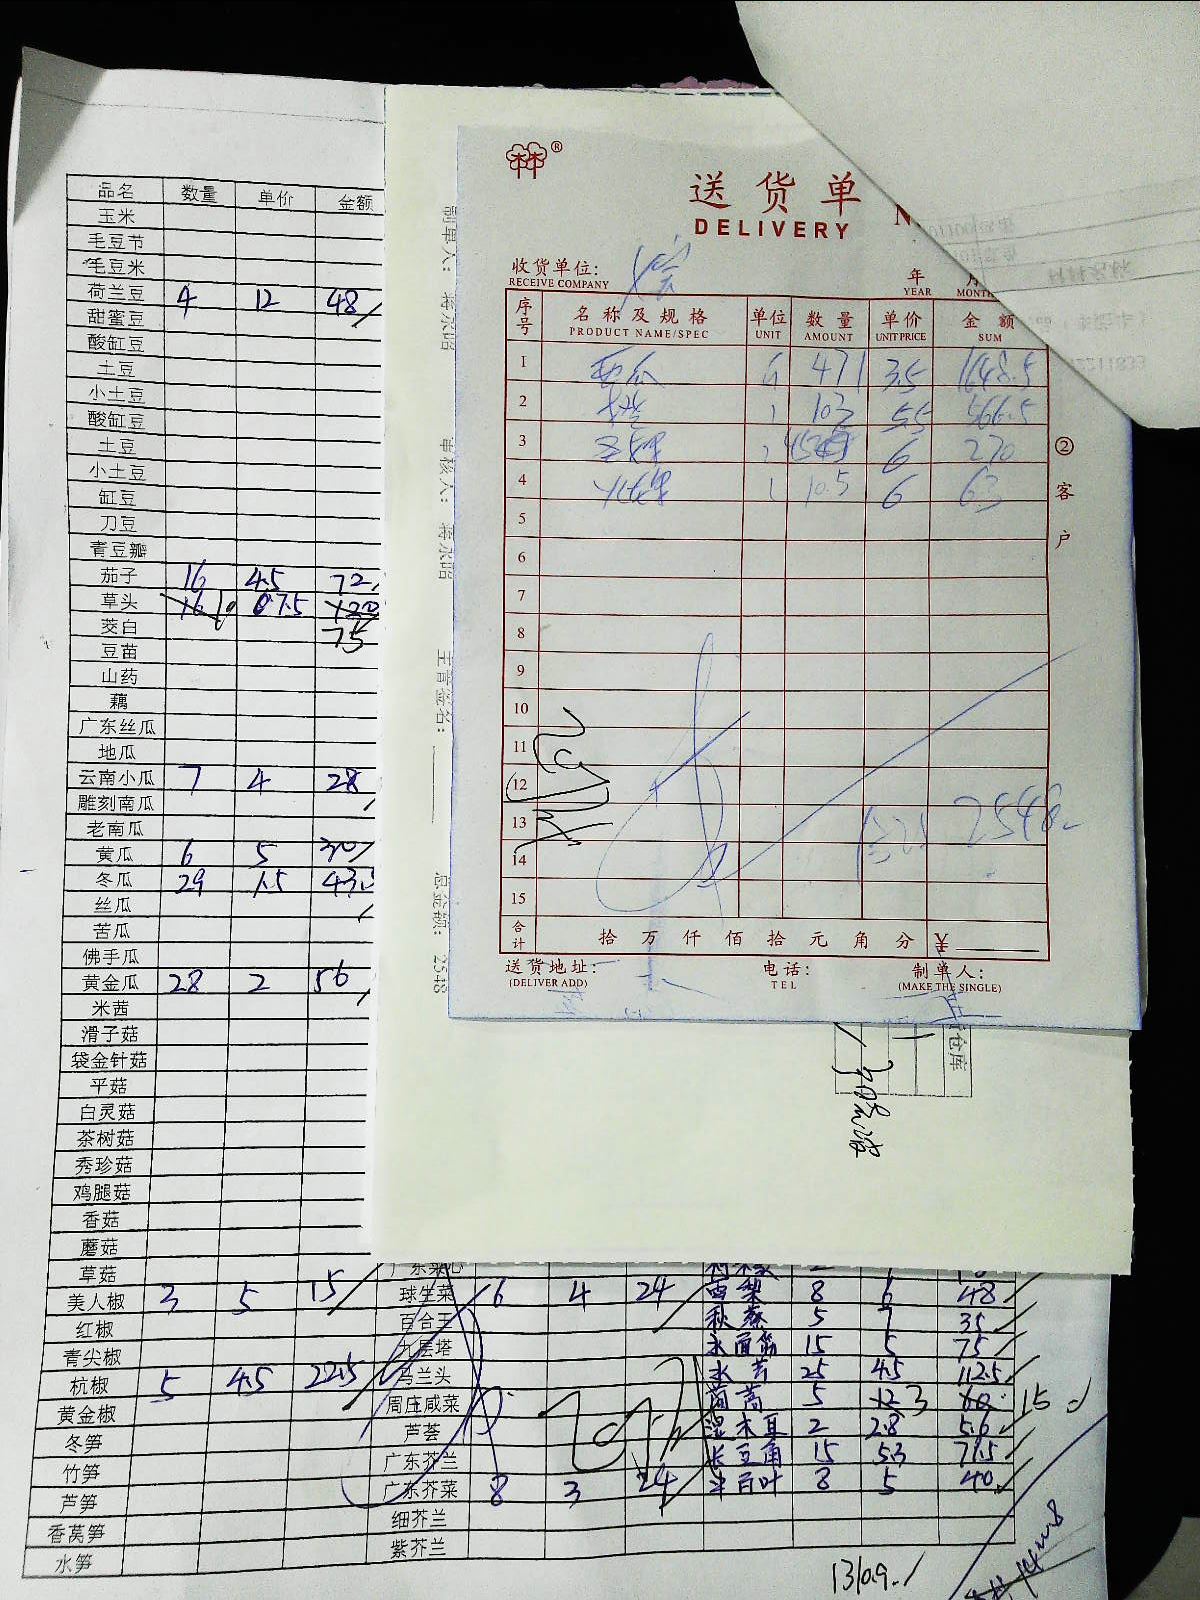 品名 数量 单价 金额
玉米
毛豆节
毛豆米
荷兰豆 4 12 48
甜蜜豆
酸缸豆
土豆
小土豆
酸缸豆
土豆
小土豆
缸豆
刀豆
青豆瓣
茄子 16 4.5 72
草头 16 10 7.5 120
茭白 75
豆苗
山药
藕
广东丝瓜
地瓜
云南小瓜 7 4 28
雕刻南瓜
老南瓜
黄瓜 6 5 30
冬瓜 29 1.5 43.5
丝瓜
苦瓜
佛手瓜
黄金瓜 28 2 56
米茜
滑子菇
袋金针菇
平菇
白灵菇
茶树菇
秀珍菇
鸡腿菇
香菇
蘑菇
草菇 广东菜心
美人椒 3 5 15 球生菜 6 4 24 西梨 8 6 48
红椒 百合王 5 7 35
青尖椒 九层塔 水面筋 15 5 75
杭椒 5 4.5 22.5 马兰头 水芹 25 4.5 112.5
黄金椒 周庄咸菜 茼蒿 5 12 3 60 15
冬笋 芦荟 湿木耳 2 2.8 5.6
竹笋 广东芥兰 长豆角 15 5.3 71.5
芦笋 广东芥菜 8 3 24 半百叶 8 5 40
香莴笋 细芥兰
水笋 紫芥兰
1310.9
®
送货单
DELIVERY
N
收货单位:
RECEIVE COMPANY
年 月
YEAR MONTH
序号 名称及规格 单位 数量 单价 金额
PRODUCT NAME/SPEC UNIT AMOUNT UNIT PRICE SUM
1 西瓜 6 471 3.5 1648.5
2 1 103 5.5 566.5
3 2 45 6 270
4 1 10.5 6 63
5
6
7
8
9
10
11
12
13 2548
14
15
合计 拾 万 仟 佰 拾 元 角 分 ¥
送货地址: 电话: 制单人:
(DELIVER ADD) TEL (MAKE THE SINGLE)
②客户
制单人: 蒋永昭
审核人: 蒋永昭
主管签名:
总金额: 2548
仓库